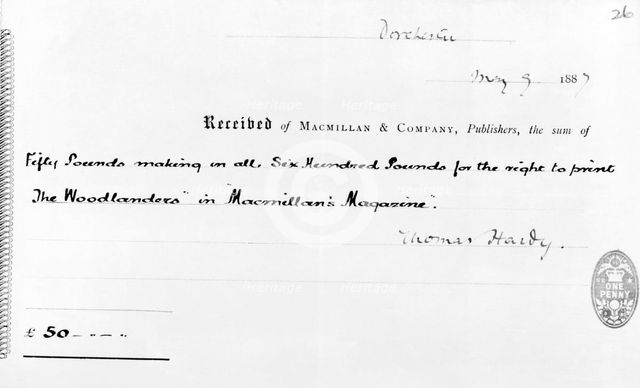 26
Dorchester
May 9 1887
Received of MACMILLAN & COMPANY, Publishers, the sum of
Fifty Pounds making in all, Six Hundred Pounds for the right to print
"The Woodlanders" in "Macmillan's Magazine".
Thomas Hardy.
ONE
PENNY
£ 50 - " - "